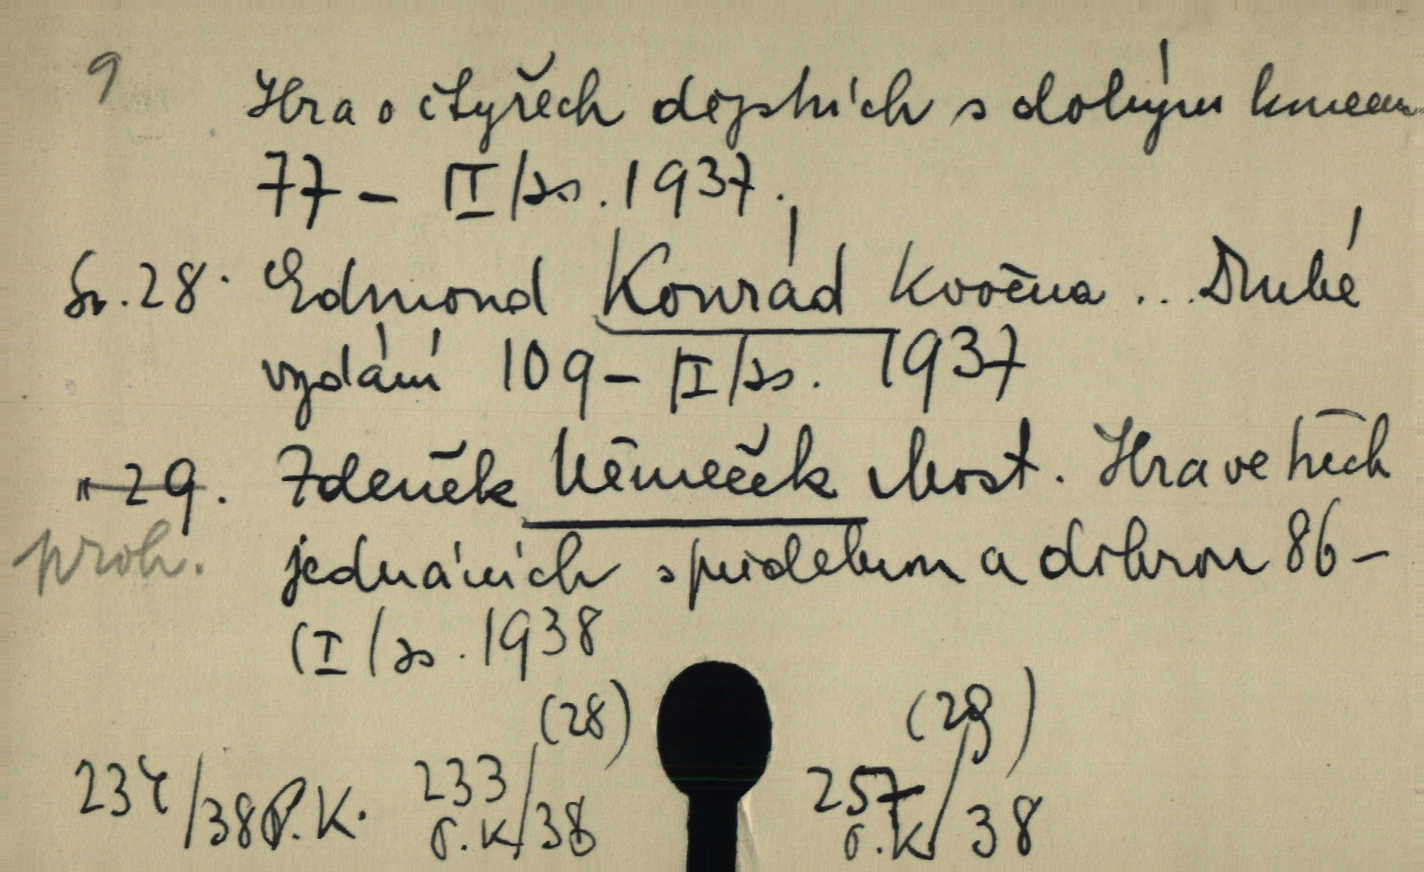 9 Hra o čtyřech dějstvích s dobrým koncem
77 – II/ss. 1937.
Sv. 28. Edmond Konrád Kvočna... Druhé
vydání 109 – II/ss. 1937
" 29. Zdeněk Němeček Most. Hra ve třech
proh. jednáních s předehrou a dohrou 86 –
(I/ss. 1938
(28) (29)
234/38 P.K. 233/38 P.K. 257/38 P.K.